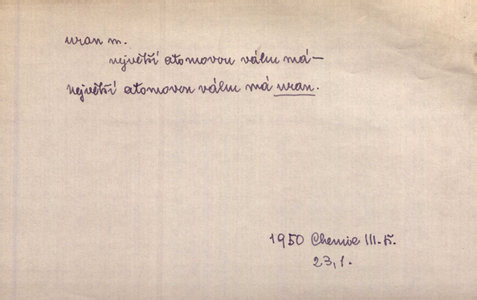 uran m.
největší atomovou váhu má—
největší atomovou váhu má uran.
1950 Chemie III.tř.
23,1.